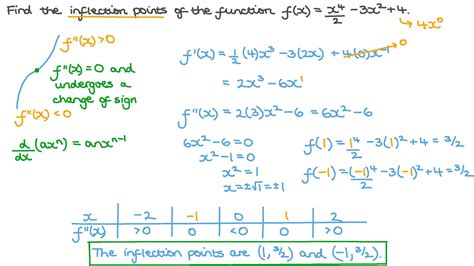 Find the inflection points of the function f(x) = x⁴/2 − 3x² + 4.
4x⁰
f″(x) > 0
f″(x) = 0 and
undergoes a
change of sign
f″(x) < 0
d/dx (axⁿ) = anxⁿ⁻¹
f′(x) = 1/2(4)x³ − 3(2x) + 4(0)x⁻¹ → 0
= 2x³ − 6x¹
f″(x) = 2(3)x² − 6 = 6x² − 6
6x² − 6 = 0
x² − 1 = 0
x² = 1
x = ±√1 = ±1
f(1) = 1⁴/2 − 3(1)² + 4 = 3/2
f(−1) = (−1)⁴/2 − 3(−1)² + 4 = 3/2
x −2 −1 0 1 2
f″(x) >0 0 <0 0 >0
The inflection points are (1, 3/2) and (−1, 3/2).